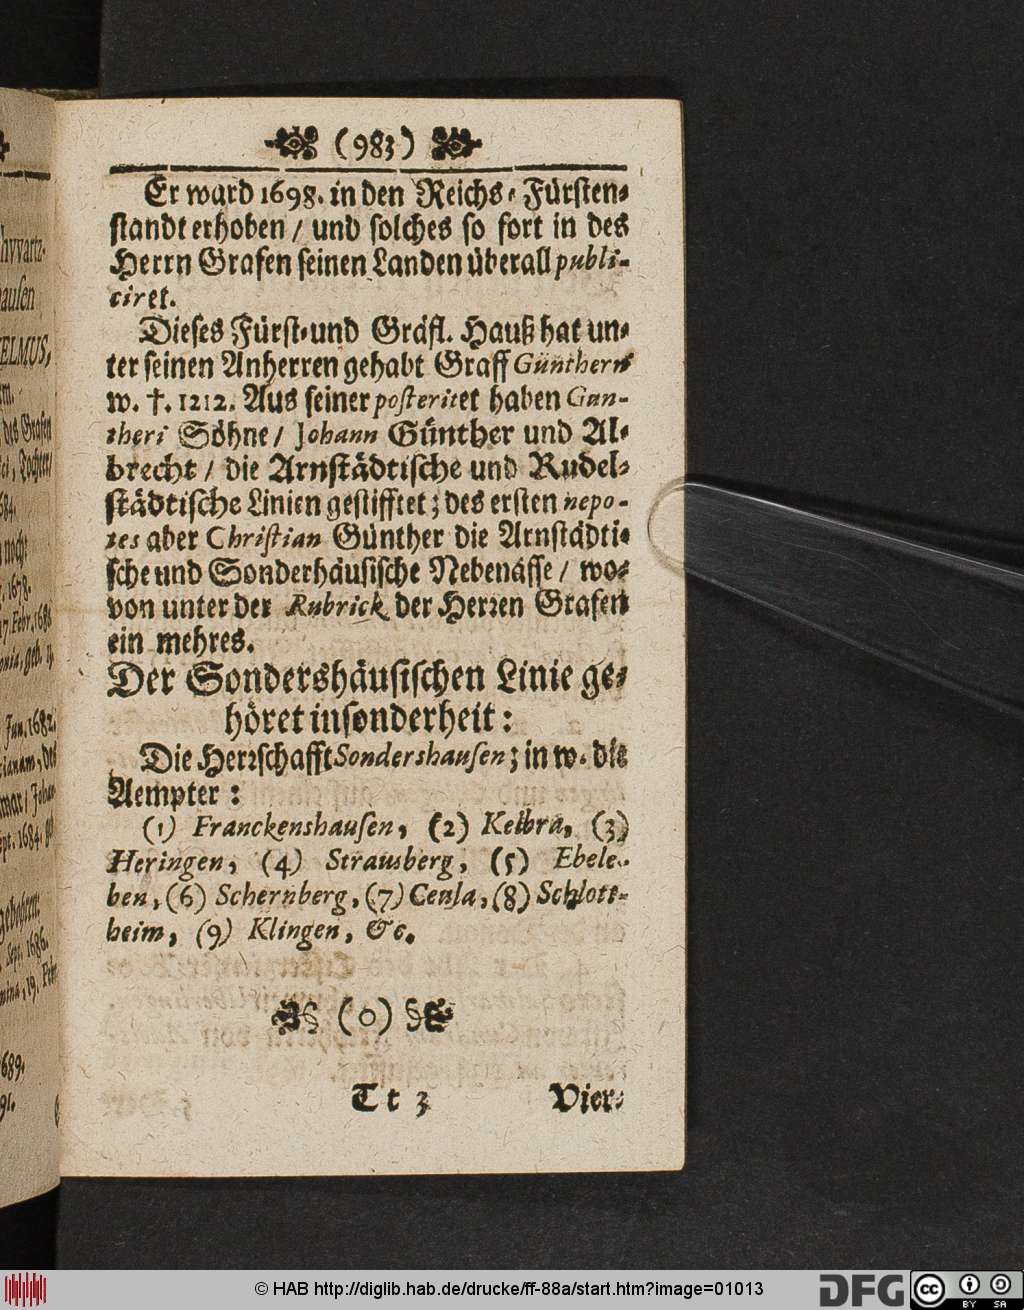 (983)
Er ward 1698. in den Reichs-Fürsten-
standt erhoben / und solches so fort in des
Herrn Grafen seinen Landen überall publi-
ciret.
Dieses Fürst-und Gräfl. Hauß hat un-
ter seinen Anherren gehabt Graff Günthern
w. †. 1212. Aus seiner posteritet haben Gun-
theri Söhne / Johann Günther und Al-
brecht / die Arnstädtische und Rudel-
städtische Linien gestifftet; des ersten nepo-
tes aber Christian Günther die Arnstädti-
sche und Sonderhäusische Nebenässe / wo-
von unter der Rubrick der Herren Grafen
ein mehres.
Der Sondershäusischen Linie ge-
höret insonderheit:
Die Herrschafft Sondershausen; in w. die
Aempter:
(1) Franckenshausen, (2) Kelbra, (3)
Heringen, (4) Strausberg, (5) Ebele-
ben, (6) Schernberg, (7) Ceula, (8) Schlott-
heim, (9) Klingen, &c.
§ (o) §
Tt 3 Vier-
hvvartz-
ausen
ELMUS,
des Grafen
Tochter/
684.
noch:
1678.
17. Febr. 1686
Jun. 1682.
1684.
gebohren:
Sept. 1686.
19. Febr
1689.
91.
© HAB http://diglib.hab.de/drucke/ff-88a/start.htm?image=01013
DFG
cc BY SA